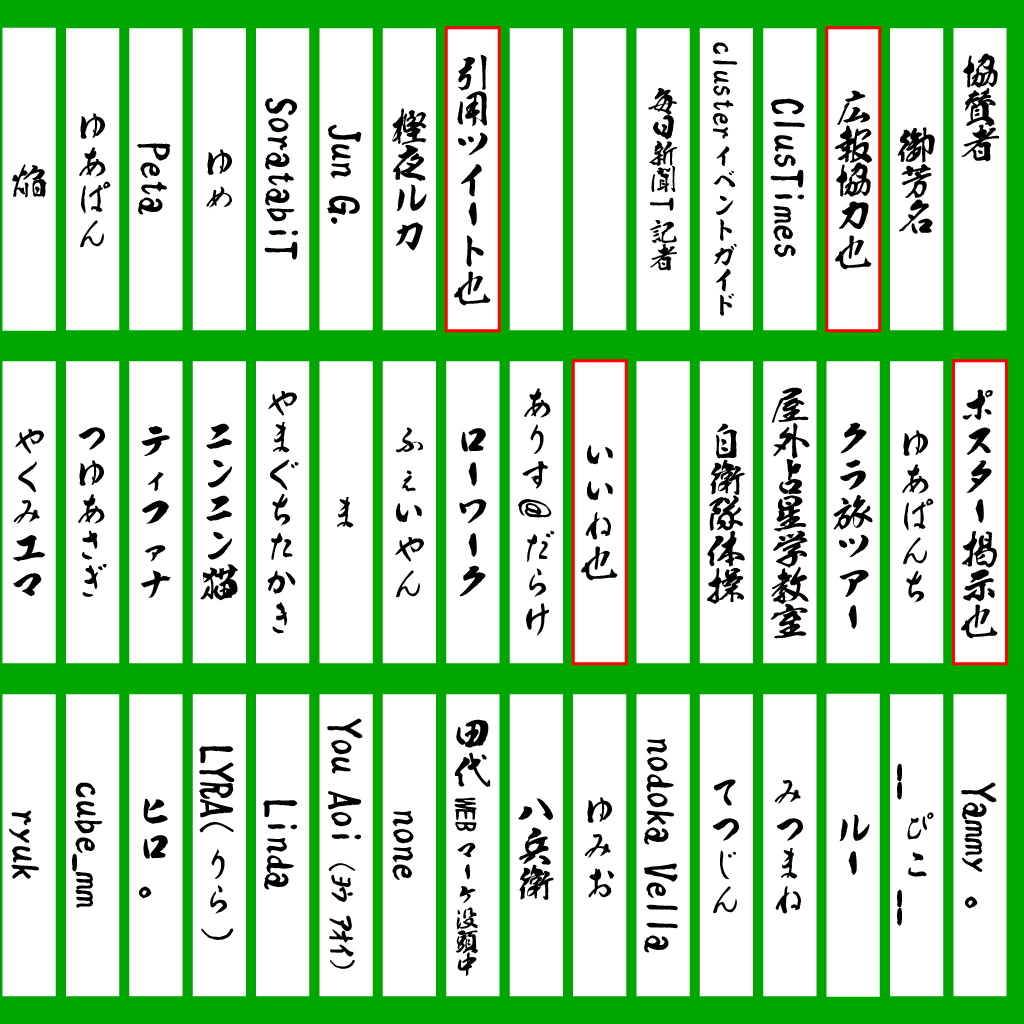 協賛者
御芳名
広報協力也
ClusTimes
clusterイベントガイド
毎日新聞T記者
引用ツイート也
樫夜ルカ
Jun G.
SoratabiT
ゆめ
Peta
ゆあぱん
焔
ポスター掲示也
ゆあぱんち
クラ旅ツアー
屋外占星学教室
自衛隊体操
いいね也
ありす@だらけ
ローワーク
ふぇいやん
ま
やまぐちたかき
ニンニン猫
ティファナ
つゆあさぎ
やくみユマ
Yammy。
--ぴこ--
ルー
みつまね
てつじん
nodoka Vella
ゆみお
八兵衛
田代WEBマーケ没頭中
none
You Aoi (ヨウ アオイ)
Linda
LYRA(りら)
ヒロ。
cube_mm
ryuk